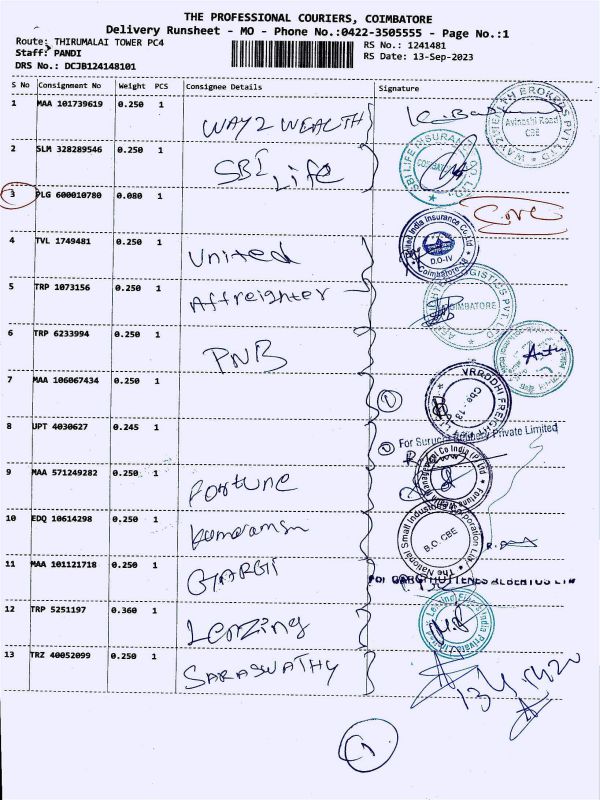 THE PROFESSIONAL COURIERS, COIMBATORE
Delivery Runsheet - MO - Phone No.:0422-3505555 - Page No.:1
Route: THIRUMALAI TOWER PC4
RS No.: 1241481
Staff: PANDI
RS Date: 13-Sep-2023
DRS No.: DCJB124148101
S No Consignment No Weight PCS Consignee Details Signature
1 MAA 101739619 0.250 1 WAY2WEALTH
WAY2WEALTH BROKERS PVT LTD Avinashi Road CBE
2 SLM 328289546 0.250 1 SBI Life
SBI LIFE INSURANCE CO. LTD
3 PLG 600010780 0.080 1
4 TVL 1749481 0.250 1 United
United India Insurance Co.Ltd D.O-IV Coimbatore
5 TRP 1073156 0.250 1 Affreighter
LOGISTICS PVT. LTD COIMBATORE
6 TRP 6233994 0.250 1 PNB
7 MAA 106067434 0.250 1 1
VRRODHI FREIGHT Cbe-13
8 UPT 4030627 0.245 1
For Private Limited
9 MAA 571249282 0.250 1 Fortune
10 EDQ 10614298 0.250 1 Kumaran
The National Small Industries Corporation Ltd B.O. CBE
11 MAA 101121718 0.250 1 GARGI
ALBERTUS
12 TRP 5251197 0.360 1 Lenzing
India Private Limited
13 TRZ 40052099 0.250 1 SARASWATHY